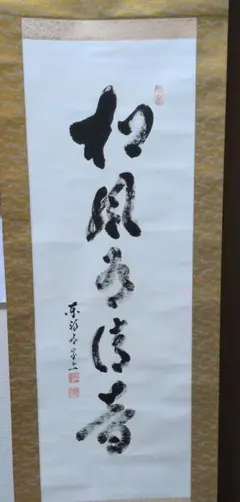 松風有清音
東福